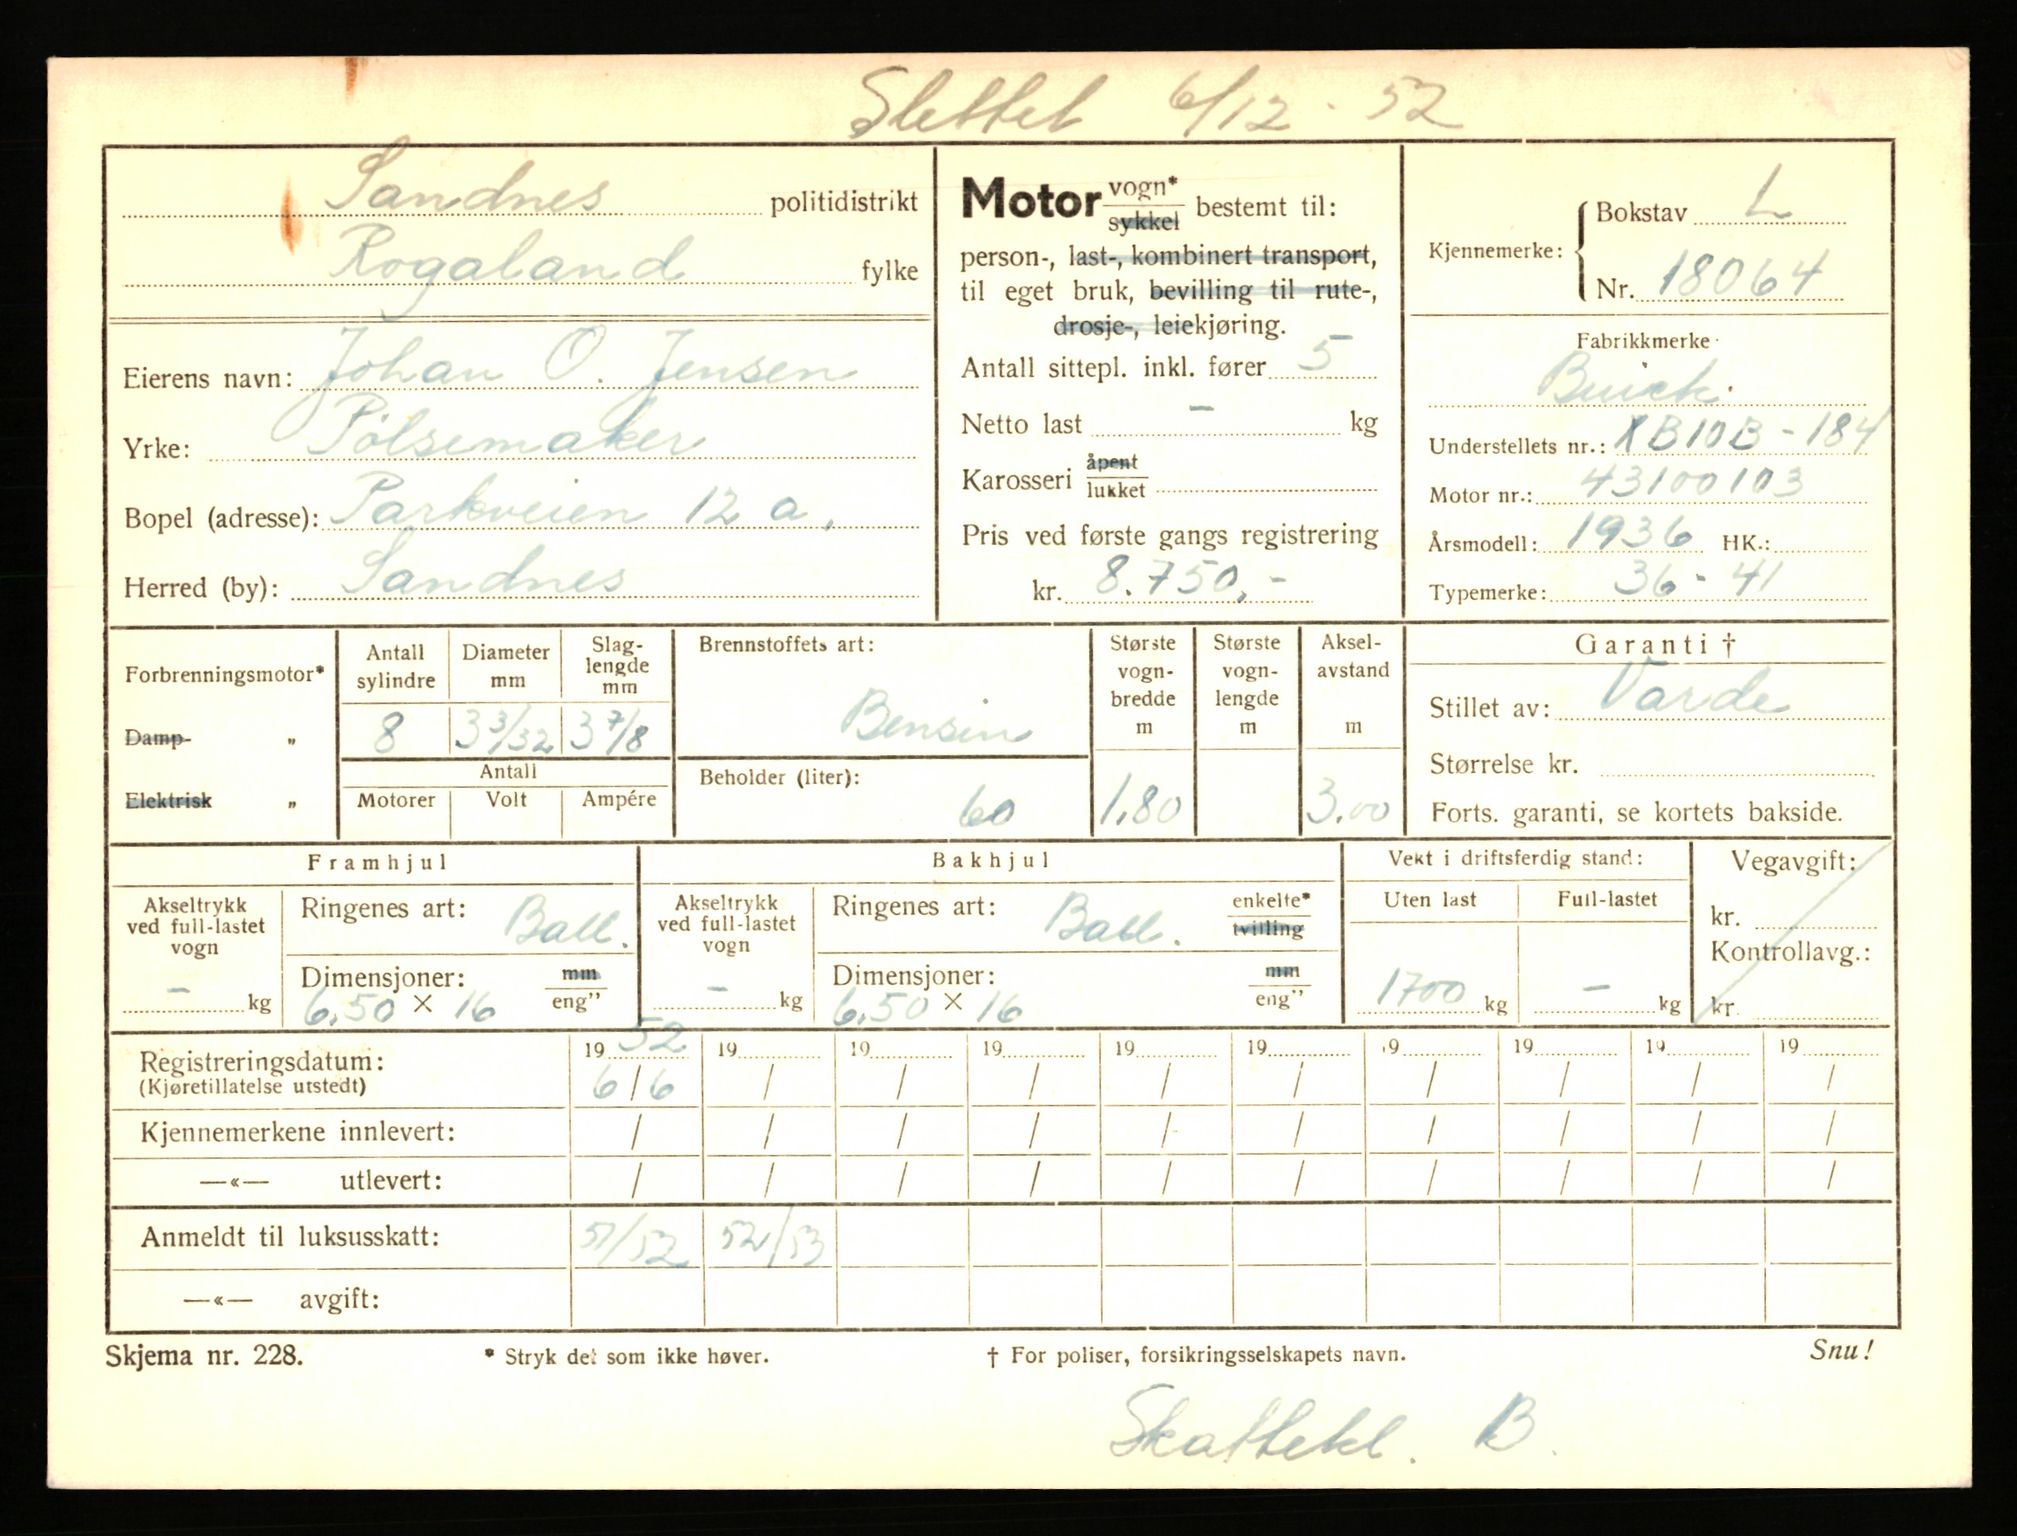 Slettet 6/12-52
Sandnes politidistrikt
Rogaland fylke
Eierens navn: Johan O. Jensen
Yrke: Pølsemaker
Bopel (adresse): Parkveien 12 a.
Herred (by): Sandnes
Motor vogn* sykkel bestemt til:
person-, last-, kombinert transport,
til eget bruk, bevilling til rute-,
drosje-, leiekjøring.
Antall sittepl. inkl. fører 5
Netto last - kg
Karosseri åpent lukket
Pris ved første gangs registrering
kr. 8.750,-
Kjennemerke: Bokstav L
Nr. 18064
Fabrikkmerke
Buick.
Understellets nr.: XB10B-184
Motor nr.: 43100103
Årsmodell: 1936 HK.:
Typemerke: 36-41
Forbrenningsmotor*
Damp- "
Elektrisk "
Antall sylindre 8
Diameter mm 3 3/32
Slaglengde mm 3 7/8
Antall
Motorer Volt Ampére
Brennstoffets art:
Bensin
Beholder (liter):
60
Største vognbredde m 1.80
Største vognlengde m
Akselavstand m 3.00
Garanti †
Stillet av: Varde
Størrelse kr.
Forts. garanti, se kortets bakside.
Framhjul
Akseltrykk ved full-lastet vogn - kg
Ringenes art: Ball.
Dimensjoner: mm eng"
6.50 × 16
Bakhjul
Akseltrykk ved full-lastet vogn - kg
Ringenes art: Ball. enkelte* tvilling
Dimensjoner: mm eng"
6.50 × 16
Vekt i driftsferdig stand:
Uten last Full-lastet
1700 kg - kg
Vegavgift:
kr.
Kontrollavg.:
kr.
Registreringsdatum: 19 52 19 19 19 19 19 19 19 19 19
(Kjøretillatelse utstedt) 6/6 / / / / / / / / /
Kjennemerkene innlevert: / / / / / / / / / /
—«— utlevert: / / / / / / / / / /
Anmeldt til luksusskatt: 51/52 52/53
—«— avgift:
Skjema nr. 228. * Stryk det som ikke høver. † For poliser, forsikringsselskapets navn. Snu!
Skattekl. B.